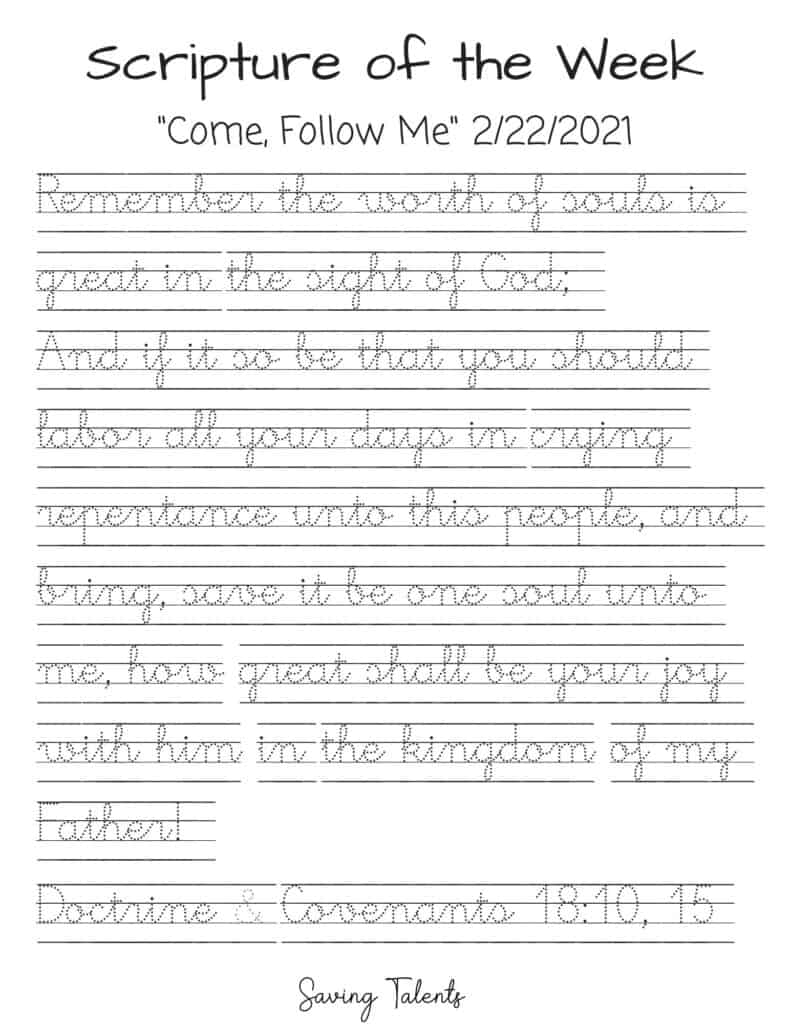 Scripture of the Week
"Come, Follow Me" 2/22/2021
Remember the worth of souls is
great in the sight of God;
And if it so be that you should
labor all your days in crying
repentance unto this people, and
bring, save it be one soul unto
me, how great shall be your joy
with him in the kingdom of my
Father!
Doctrine & Covenants 18:10, 15
Saving Talents